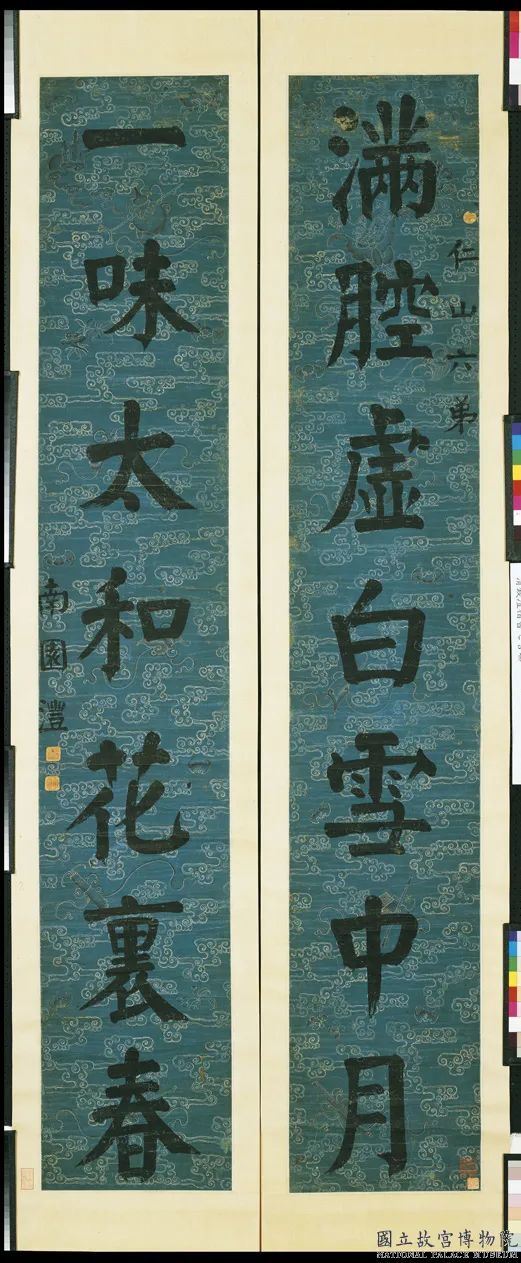 仁山六弟
滿腔虛白雪中月
一味太和花裏春
南園灃
國立故宮博物院
NATIONAL PALACE MUSEUM